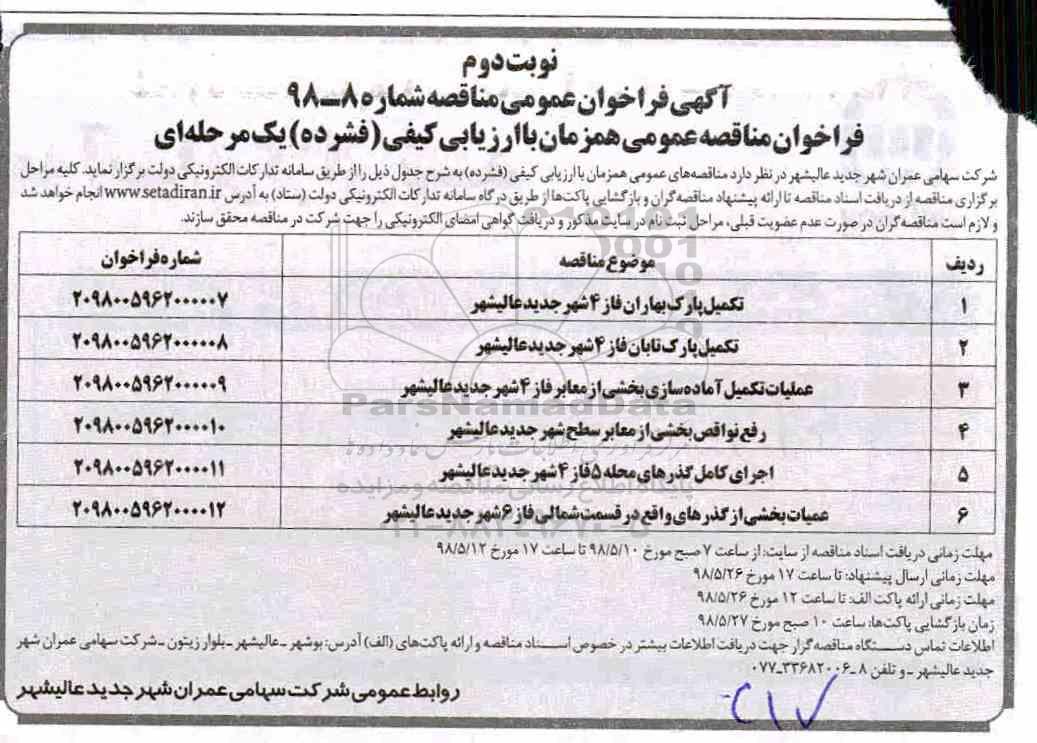 نوبت دوم
آگهی فراخوان عمومی مناقصه شماره ۸ــ۹۸
فراخوان مناقصه عمومی همزمان با ارزیابی کیفی (فشرده) یک مرحله‌ای
شرکت سهامی عمران شهر جدید عالیشهر در نظر دارد مناقصه‌های عمومی همزمان با ارزیابی کیفی (فشرده) به شرح جدول ذیل را از طریق سامانه تدارکات الکترونیکی دولت برگزار نماید. کلیه مراحل
برگزاری مناقصه از دریافت اسناد مناقصه تا ارائه پیشنهاد مناقصه‌گران و بازگشایی پاکت‌ها از طریق درگاه سامانه تدارکات الکترونیکی دولت (ستاد) به آدرس www.setadiran.ir انجام خواهد شد
و لازم است مناقصه‌گران در صورت عدم عضویت قبلی، مراحل ثبت نام در سایت مذکور و دریافت گواهی امضای الکترونیکی را جهت شرکت در مناقصه محقق سازند.
ردیف موضوع مناقصه شماره فراخوان
۱ تکمیل پارک بهاران فاز ۴ شهر جدید عالیشهر ۲۰۹۸۰۰۵۹۶۲۰۰۰۰۰۷
۲ تکمیل پارک تابان فاز ۴ شهر جدید عالیشهر ۲۰۹۸۰۰۵۹۶۲۰۰۰۰۰۸
۳ عملیات تکمیل آماده‌سازی بخشی از معابر فاز ۴ شهر جدید عالیشهر ۲۰۹۸۰۰۵۹۶۲۰۰۰۰۰۹
۴ رفع نواقص بخشی از معابر سطح شهر جدید عالیشهر ۲۰۹۸۰۰۵۹۶۲۰۰۰۰۱۰
۵ اجرای کامل گذرهای محله ۵ فاز ۴ شهر جدید عالیشهر ۲۰۹۸۰۰۵۹۶۲۰۰۰۰۱۱
۶ عمیات بخشی از گذرهای واقع در قسمت شمالی فاز ۶ شهر جدید عالیشهر ۲۰۹۸۰۰۵۹۶۲۰۰۰۰۱۲
ParsNamadData
پایگاه اطلاع رسانی مناقصه و مزایده
مهلت زمانی دریافت اسناد مناقصه از سایت: از ساعت ۷ صبح مورخ ۹۸/۵/۱۰ تا ساعت ۱۷ مورخ ۹۸/۵/۱۲
مهلت زمانی ارسال پیشنهاد: تا ساعت ۱۷ مورخ ۹۸/۵/۲۶
مهلت زمانی ارائه پاکت الف: تا ساعت ۱۲ مورخ ۹۸/۵/۲۶
زمان بازگشایی پاکت‌ها: ساعت ۱۰ صبح مورخ ۹۸/۵/۲۷
اطلاعات تماس دستگاه مناقصه‌گزار جهت دریافت اطلاعات بیشتر در خصوص اسناد مناقصه و ارائه پاکت‌های (الف) آدرس: بوشهر ـ عالیشهر ـ بلوار زیتون ـ شرکت سهامی عمران شهر
جدید عالیشهر ـ و تلفن ۸ـ۳۳۶۸۲۰۰۶ـ۰۷۷
روابط عمومی شرکت سهامی عمران شهر جدید عالیشهر